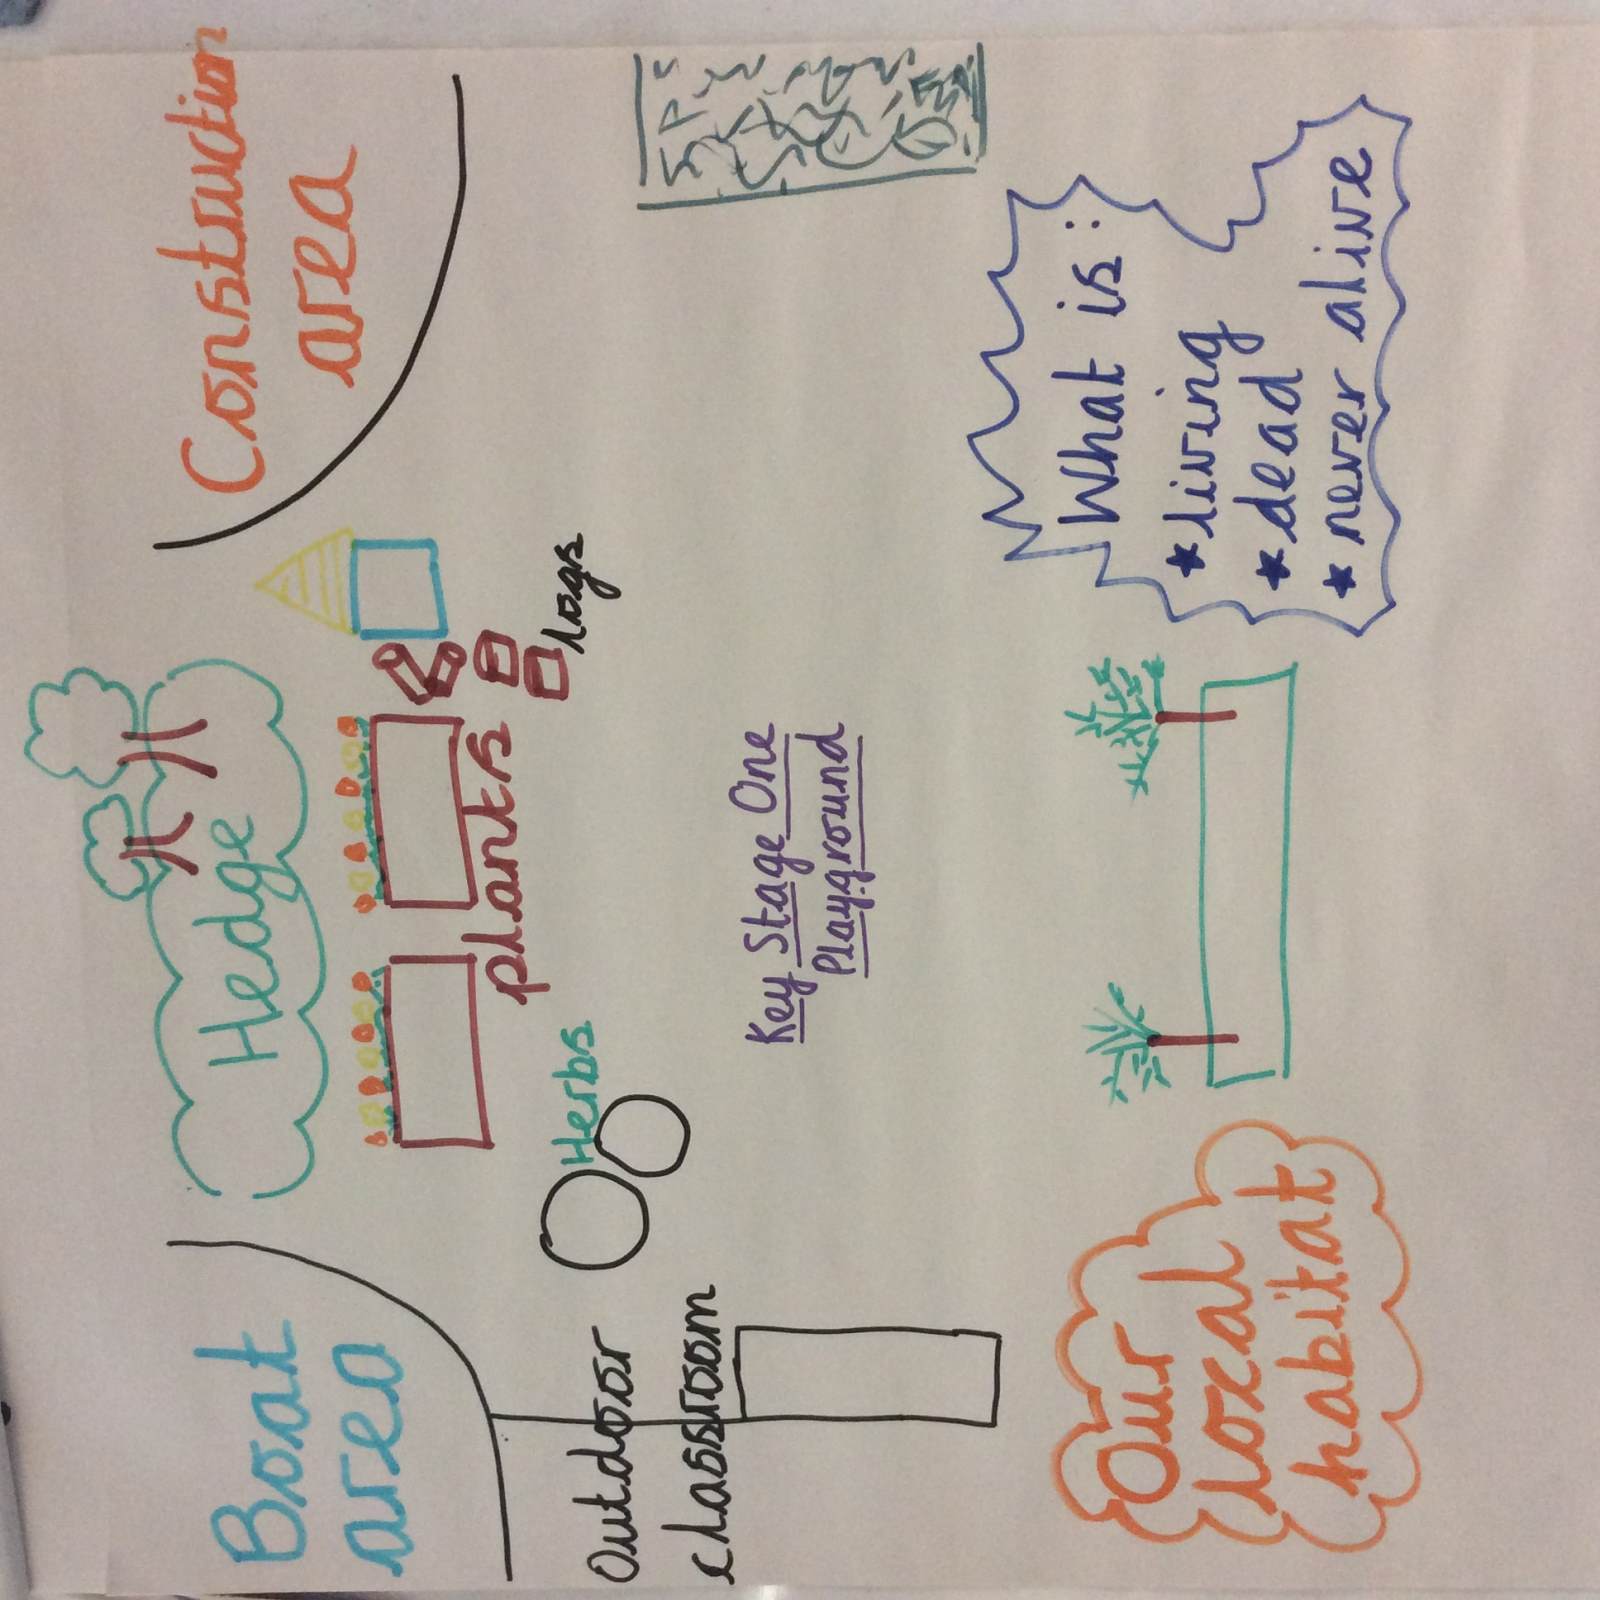 Boat
area
Hedge
Construction
area
plants
logs
Herbs
Outdoor
classroom
Key Stage One
Playground
Our
local
habitat
What is:
★living
★dead
★never alive